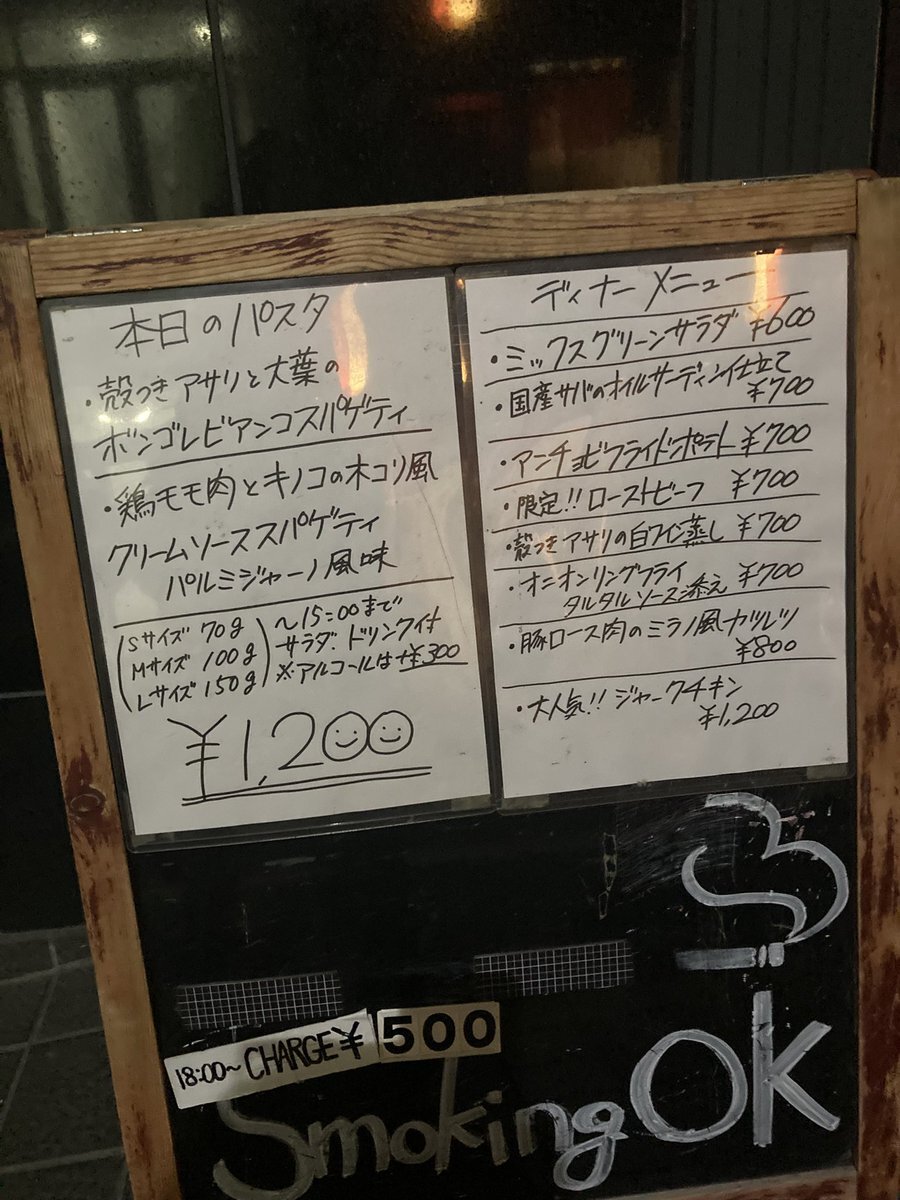 本日のパスタ
・殻つきアサリと大葉の
ボンゴレビアンコスパゲティ
・鶏モモ肉とキノコの木コリ風
クリームソーススパゲティ
パルミジャーノ風味
Sサイズ 70g
Mサイズ 100g
Lサイズ 150g
〜15:00まで
サラダ.ドリンク付
※アルコールは+¥300
¥1,200
ディナーメニュー
・ミックスグリーンサラダ ¥600
・国産サバのオイルサーディン仕立て
¥700
・アンチョビフライドポテト ¥700
・限定!! ローストビーフ ¥700
・殻つきアサリの白ワイン蒸し ¥700
・オニオンリングフライ
タルタルソース添え ¥700
・豚ロース肉のミラノ風カツレツ
¥800
・大人気!! ジャークチキン
¥1,200
18:00~ CHARGE ¥ 500
Smoking OK